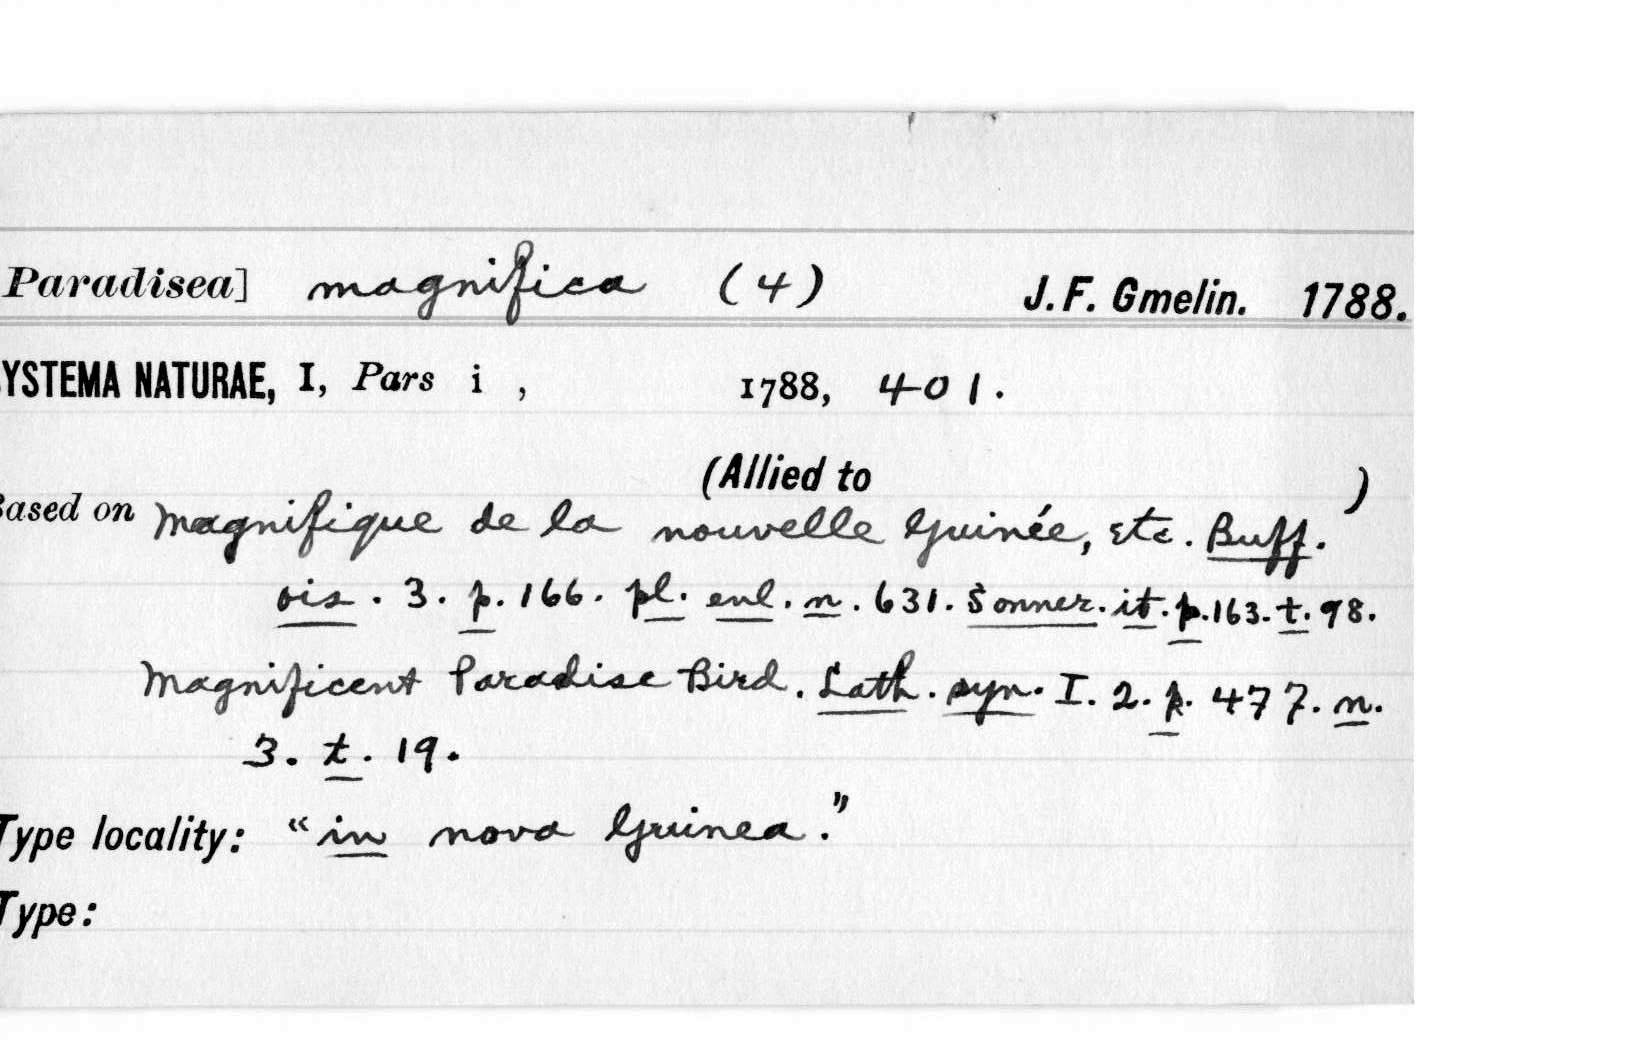 Paradisea] magnifica (4) J.F. Gmelin. 1788.
YSTEMA NATURAE, I, Pars i , 1788, 401.
(Allied to )
ased on Magnifique de la nouvelle Guinée, etc. Buff.
ois. 3. p. 166. pl. enl. n. 631. Sonner. it. p. 163. t. 98.
Magnificent Paradise Bird. Lath. syn. I. 2. p. 477. n.
3. t. 19.
Type locality: "in nova Guinea."
Type: